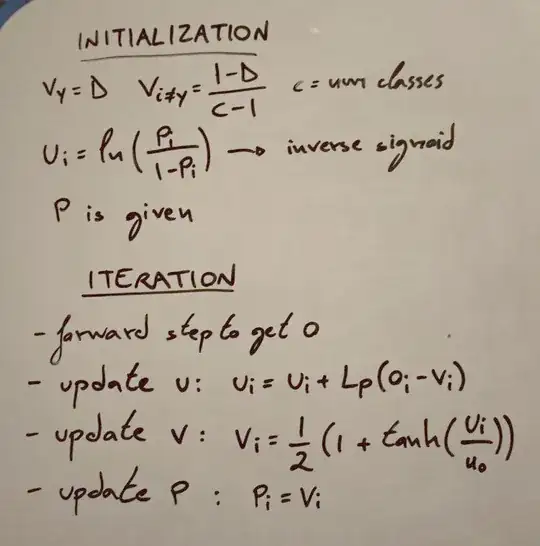 INITIALIZATION
Vy = D Vi≠y = (1-D)/(c-1) c = num classes
Ui = ln(Pi/(1-Pi)) → inverse sigmoid
P is given
ITERATION
- forward step to get o
- update u: Ui = Ui + Lp(Oi - Vi)
- update V: Vi = 1/2 (1 + tanh(Ui/u0))
- update P: Pi = Vi